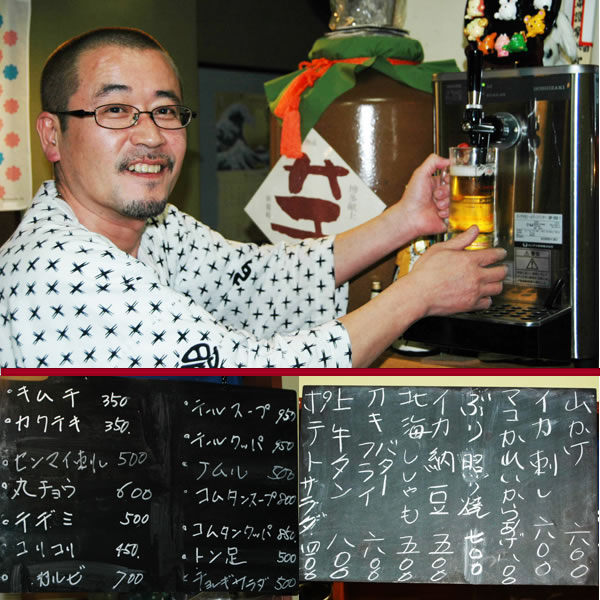 博多献上
HOSHIZAKI
・キムチ 350
・カクテキ 350.
・センマイ刺し 500
・丸チョウ 600
・チヂミ 500
・コリコリ 450.
・カルビ 700
・テールスープ 950
・テールクッパ 950
・ナムル 500
・コムタンスープ 800
・コムタンクッパ 850
・トン足 500
・チョレギサラダ 500
山かけ 六〇〇
イカ刺し 六〇〇
マコかれいからあげ 八〇〇
ぶり照焼 七〇〇
イカ納豆 五〇〇
北海ししゃも 五〇〇
カキバターフライ 六〇〇
上牛タン 八〇〇
ポテトサラダ 四〇〇